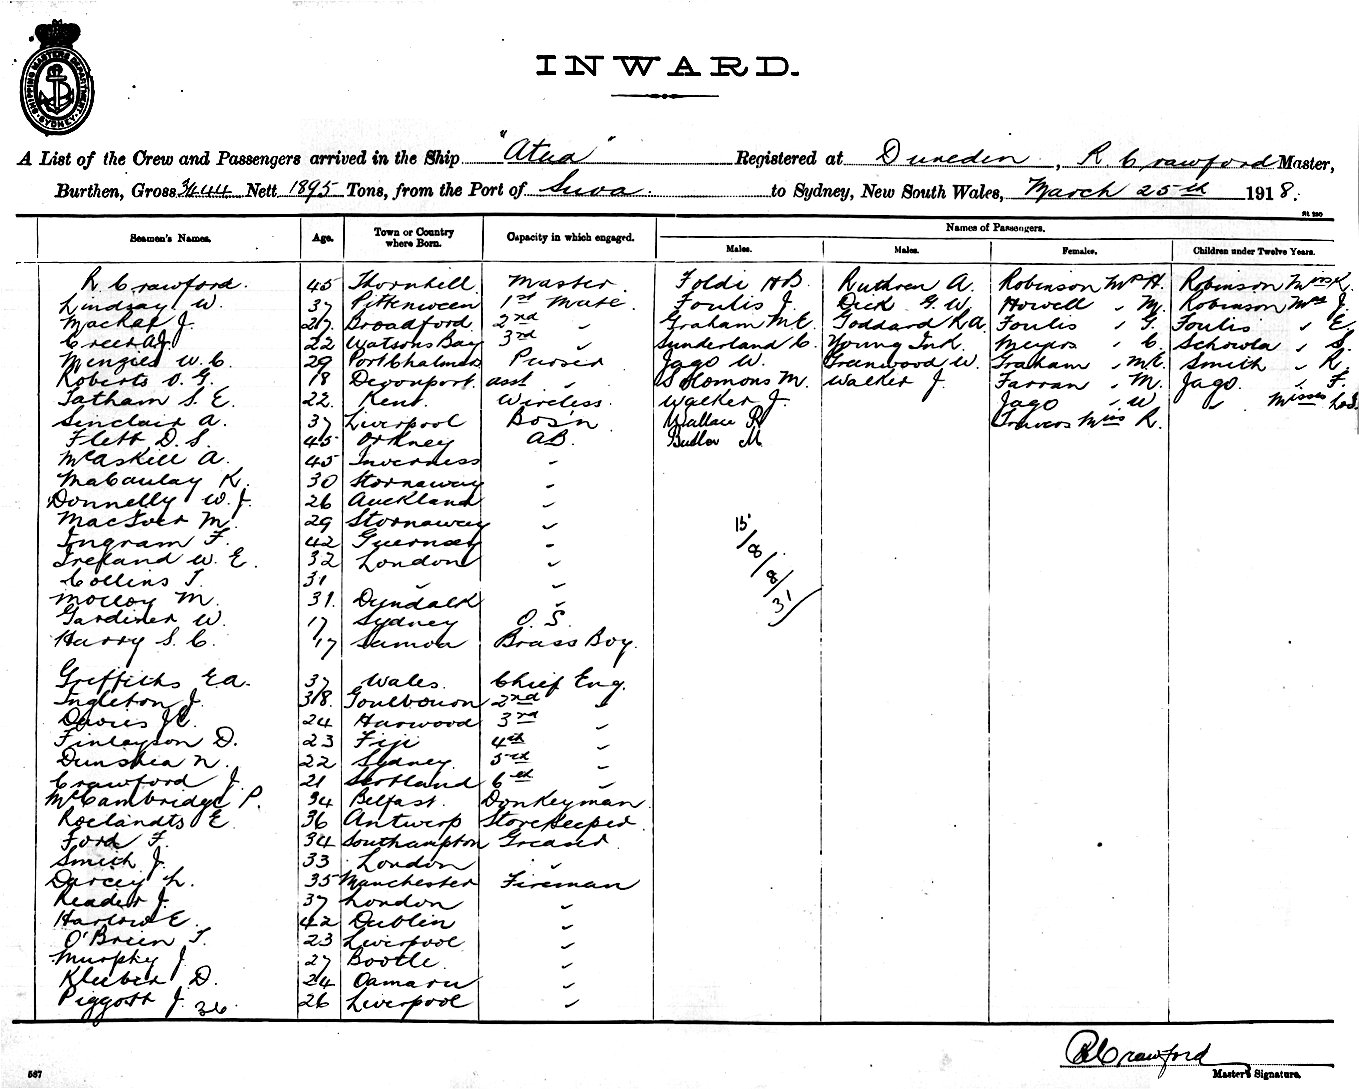 SHIPPING MASTERS DEPARTMENT SYDNEY
INWARD.
A List of the Crew and Passengers arrived in the Ship "Atua" Registered at Dunedin, R Crawford Master,
Burthen, Gross 3444 Nett 1895 Tons, from the Port of Suva. to Sydney, New South Wales, March 25th 1918.
Seamen's Names. Age. Town or Country where Born. Capacity in which engaged. Names of Passengers.
Males. Males. Females. Children under Twelve Years.
R. Crawford. 45 Thornhill. Master. Foldi H B Ruthven A. Robinson Mrs H. Robinson Miss K.
Lindsay W. 37 Pittenween 1st Mate. Foulis J. Dick G. W. Howell " M. Robinson J.
Mackay J. 27 Broadford. 2nd " Graham M E. Goddard R A Foulis " Foulis " E.
Creer A J 22 Watsons Bay 3rd " Sunderland C. Young Ind. Meyers " C. "
Menzies W. C. 29 Port Chalmers Purser Jago W. Greenwood W. Graham " M E. Smith " R.
Roberts O. G. 18 Devonport. asst " Solomons M. Walker J. Farran " M. Jago. " F.
Tatham S. E. 22. Kent. Wireless. Walker J. Jago " W " Misses
Sinclair A. 37 Liverpool Bos'n Wallace R Miss R.
Flett D. S. 45 Orkney AB. Butler M
McAskill A. 45 Inverness "
MaCaulay K. 30 Stornaway "
Donnelly W. J. 26 Auckland "
MacIver M. 29 Stornaway "
Ingram F. 42 Guernsey "
Ireland W. E. 32 London "
Collins T. 31 " "
Molloy M. 31. Dundalk "
Gardiner W. 17 Sydney O. S.
Harry S. C. 17 Samoa Brass Boy.
15/8/8/31
Griffiths E a. 37 Wales. Chief Eng.
Ingleton J. 38. Goulbourn 2nd "
Davies J C. 24 Harwood 3rd "
Finlayson D. 23 Fiji 4th "
Dunshea N. 22 Sydney. 5th "
Crawford J. 21 Scotland 6th "
McCambridge P. 34 Belfast. Donkeyman
Roelandts E. 36 Antwerp Storekeeper
Ford F. 34 Southampton Greaser.
Smith J. 33 London "
Darcey L. 35 Manchester Fireman
Reader J. 37 London "
Harlow E. 42 Dublin "
O'Brien T. 23 Liverpool "
Murphy J. 27 Bootle. "
Kleiber D. 24 Oamaru "
Piggott J. 26 Liverpool "
36
R Crawford
Master's Signature.
587